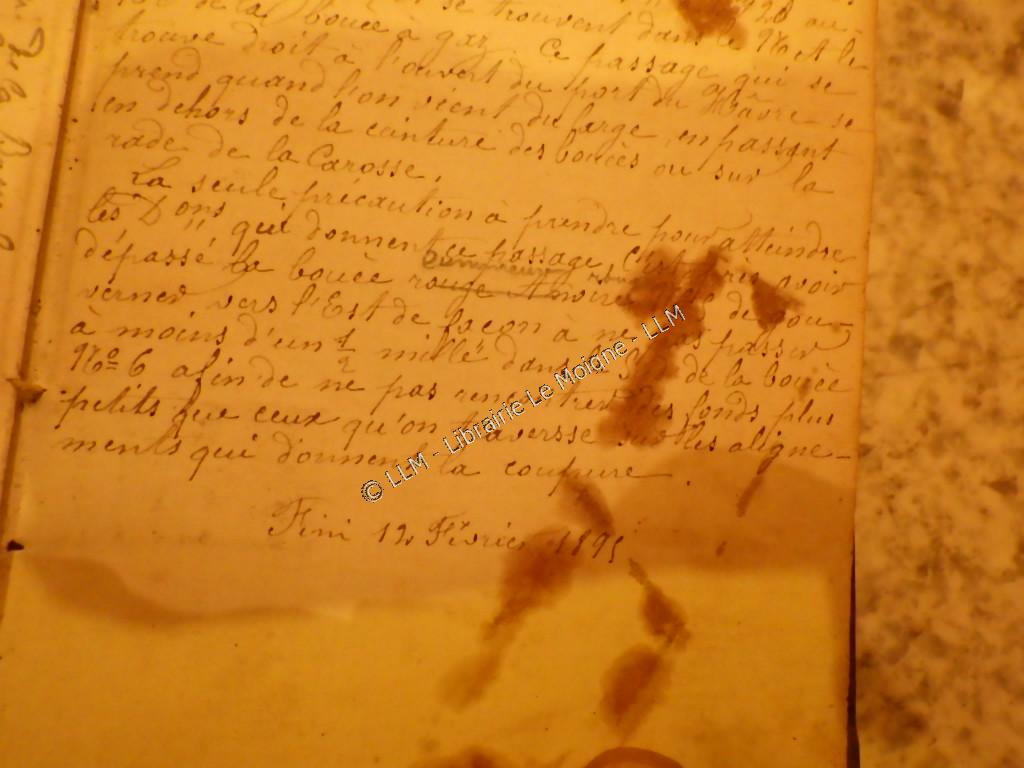 de la bouée à gaz se trouvent dans le No et le
trouve droit à l'ouvert du port du Hâvre se
Ce passage qui se
prend quand l'on vient du large en passant
en dehors de la ceinture des bouées ou sur la
rade de la Carosse.
La seule précaution à prendre pour atteindre
les Dons qui donnent ce passage c'est
avoir
dépassé la bouée rouge & noire
de gou-
verner vers l'Est de façon à ne pas passer
à moins d'un 1/2 mille dans
de la bouée
No 6 afin de ne pas rencontrer des fonds plus
petits que ceux qu'on traversse sur les aligne-
ments qui donnent la coupure.
Fini 12 Février 1895
© LLM - Librairie Le Moigne - LLM